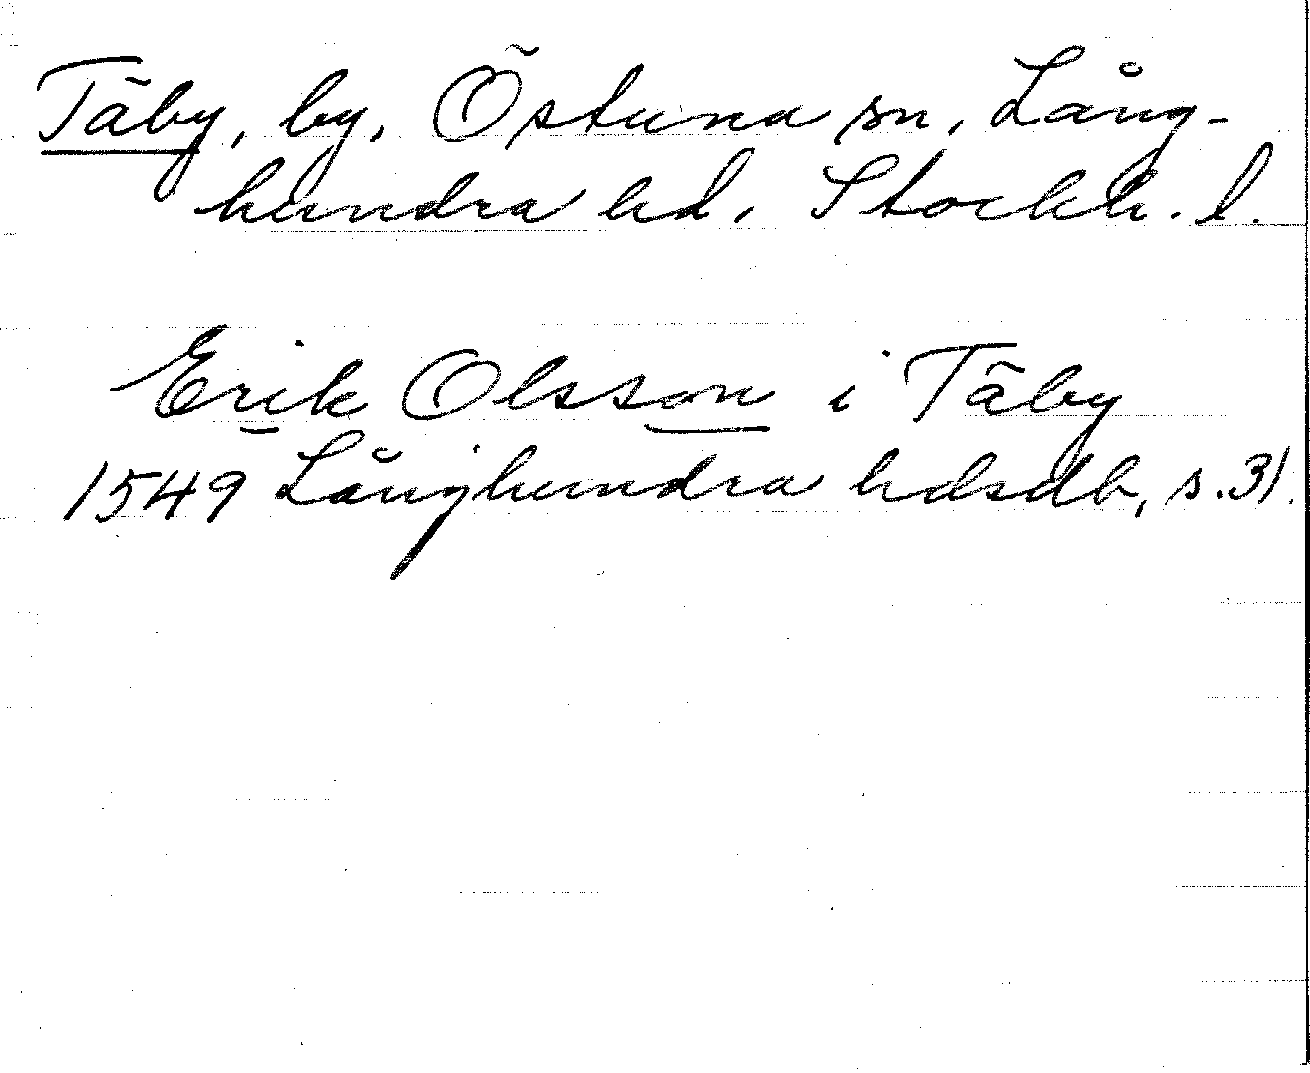 Täby, by, Östuna sn, Lång-
hundra hd, Stockh. l.
Erik Olsson i Täby
1549 Långhundra hdsdb, s. 31.